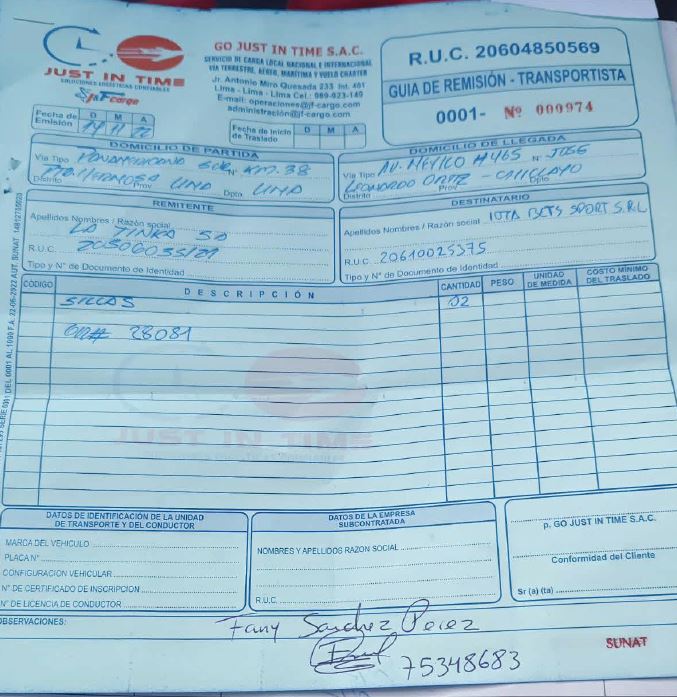 GO JUST IN TIME S.A.C.
SERVICIO DE CARGA LOCAL NACIONAL E INTERNACIONAL
VIA TERRESTRE, AEREO, MARÍTIMA Y VUELO CHARTER
Jr. Antonio Miro Quesada 233 Int. 401
Lima - Lima - Lima Cel.: 989-023-149
E-mail: operaciones@jf-cargo.com
administración@jf-cargo.com
JUST IN TIME
SOLUCIONES LOGISTICAS CONFIABLES
J&F cargo
R.U.C. 20604850569
GUIA DE REMISIÓN - TRANSPORTISTA
0001- Nº 000974
Fecha de Emisión D M A
Fecha de Inicio de Traslado D M A
DOMICILIO DE PARTIDA
Via Tipo Panamericana Sur Nº KM. 38
Distrito Prov LIMA Dpto LIMA
DOMICILIO DE LLEGADA
Via Tipo AV. MEXICO #465 Nº JOSE
Distrito LEONARDO ORTIZ Prov - CHICLAYO Dpto
REMITENTE
Apellidos Nombres / Razón social LA TINKA SA
R.U.C.
Tipo y N° de Documento de Identidad
DESTINATARIO
Apellidos Nombres / Razón social IOTA BETS SPORT S.R.L
R.U.C. 20610025375
Tipo y N° de Documento de Identidad
CÓDIGO DESCRIPCIÓN CANTIDAD PESO UNIDAD DE MEDIDA COSTO MÍNIMO DEL TRASLADO
SILLAS 02
28081
JUST IN TIME
DATOS DE IDENTIFICACIÓN DE LA UNIDAD
DE TRANSPORTE Y DEL CONDUCTOR
MARCA DEL VEHICULO
PLACA N°
CONFIGURACIÓN VEHICULAR
N° DE CERTIFICADO DE INSCRIPCION
N° DE LICENCIA DE CONDUCTOR
DATOS DE LA EMPRESA
SUBCONTRATADA
NOMBRES Y APELLIDOS RAZON SOCIAL
R.U.C.
p. GO JUST IN TIME S.A.C.
Conformidad del Cliente
Sr (a) (ta)
OBSERVACIONES:
Fany Sanchez Perez
75348683
SUNAT